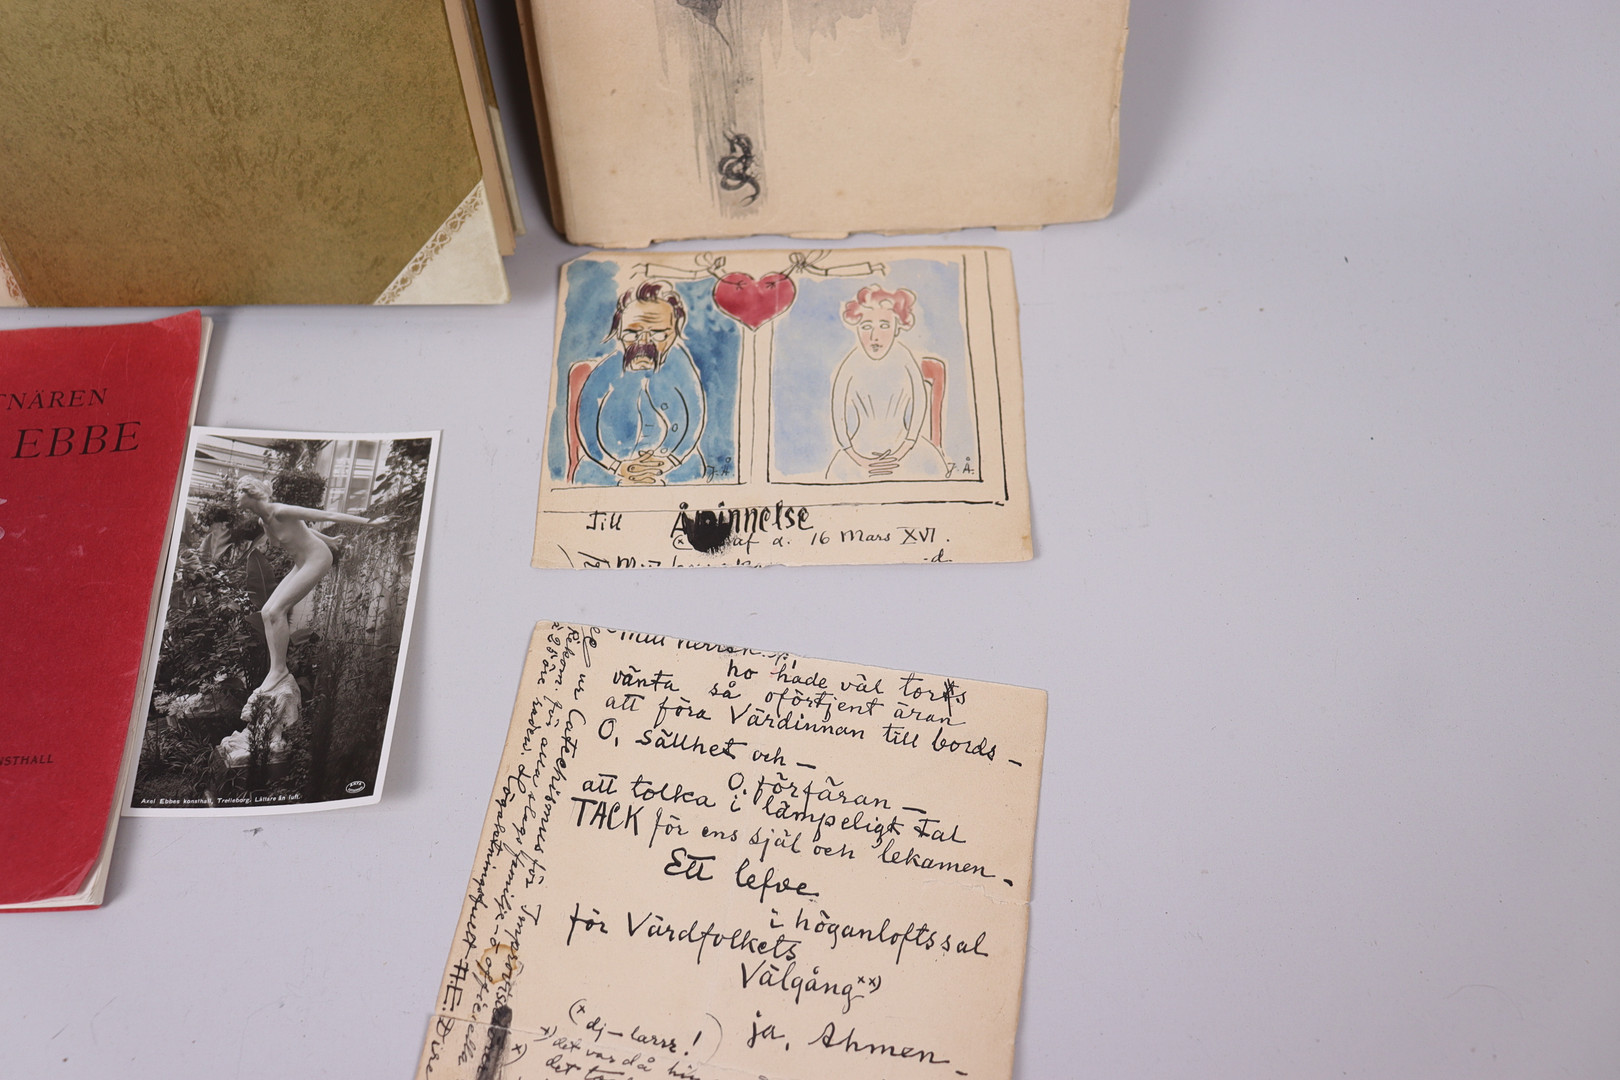 TNÄREN
EBBE
NSTHALL
Axel Ebbes konsthall, Trelleborg. Lättare än luft.
J.Å.
J.Å.
Till Åminnelse
af d. 16 Mars XVI.
ho hade väl
vänta så oförtjent äran
att föra Värdinnan till bords –
O, sällhet och –
O, förfäran –
att tolka i lämpeligt Tal
TACK för ens själ och lekamen –
Ett lefve
i höganloftssal
för Värdfolkets
Välgång xx)
ja, Ahmen –
(x dj – larrr!)
x) det var då
det
ur Catechismus för
för alla slags familje- o officiella
Högaktningsfullt A.E.